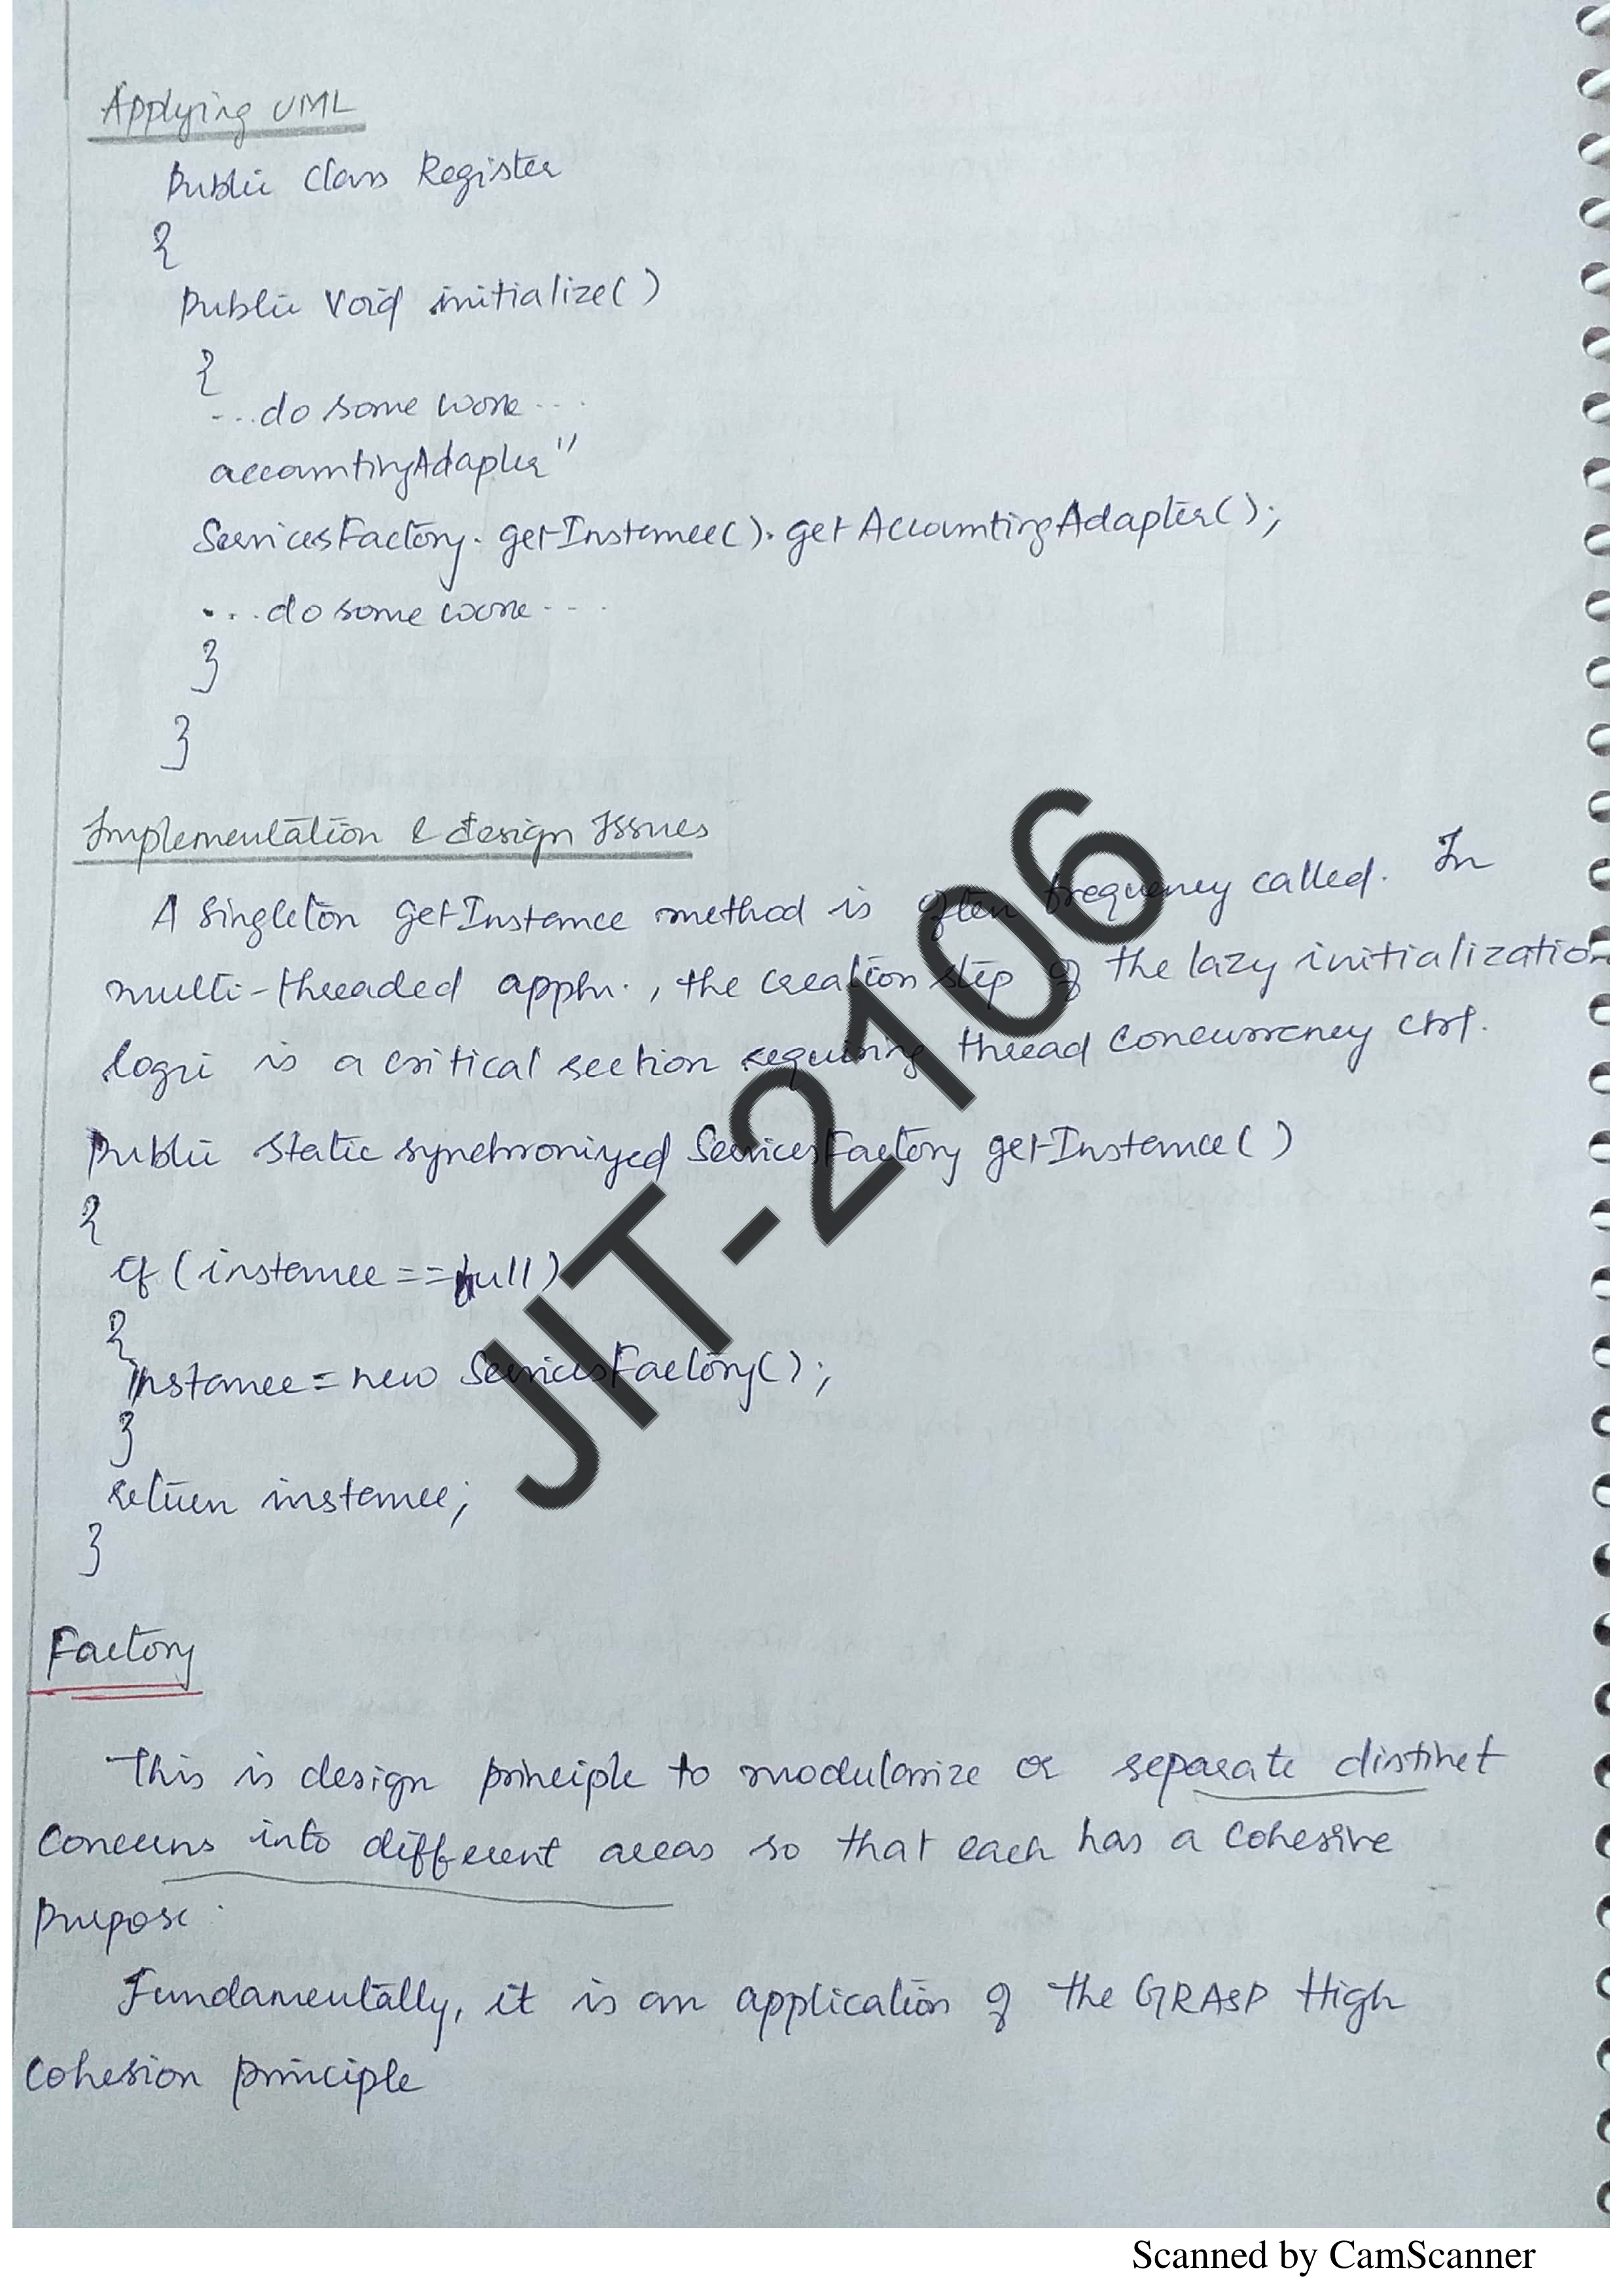 Applying UML
Public Class Register
{
Public Void initialize()
{
...do some work...
accountingAdapter"
ServicesFactory.getInstance().getAccountingAdapter();
...do some work...
}
}
Implementation & design Issues
A Singleton getInstance method is often frequency called. In
multi-threaded appln., the creation step of the lazy initialization
logic is a critical section requiring thread concurrency ctrl.
Public static synchronized ServicesFactory getInstance()
{
if (instance == null)
{
instance = new ServicesFactory();
}
return instance;
}
Factory
This is design principle to modularize or separate distinct
concerns into different areas so that each has a cohesive
purpose.
Fundamentally, it is an application of the GRASP High
Cohesion principle
JIT-2106
Scanned by CamScanner